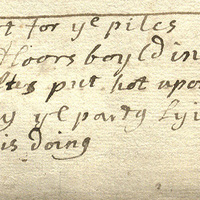 t for ye piles
floors boyld in
put hot upon
y ye party lyi
is doing